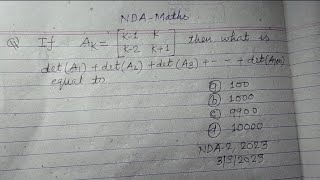 NDA-Maths
Q If A_K = [K-1 K
K-2 K+1] then what is
det(A1) + det(A2) + det(A3) + - - + det(A100)
equal to
a 100
b 1000
c 9900
d 10000
NDA-2, 2023
3/9/2023